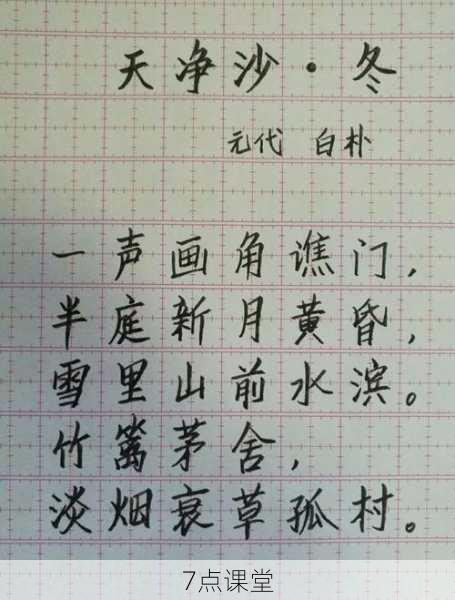 天净沙·冬
元代 白朴
一声画角谯门,
半庭新月黄昏,
雪里山前水滨。
竹篱茅舍,
淡烟衰草孤村。
7点课堂